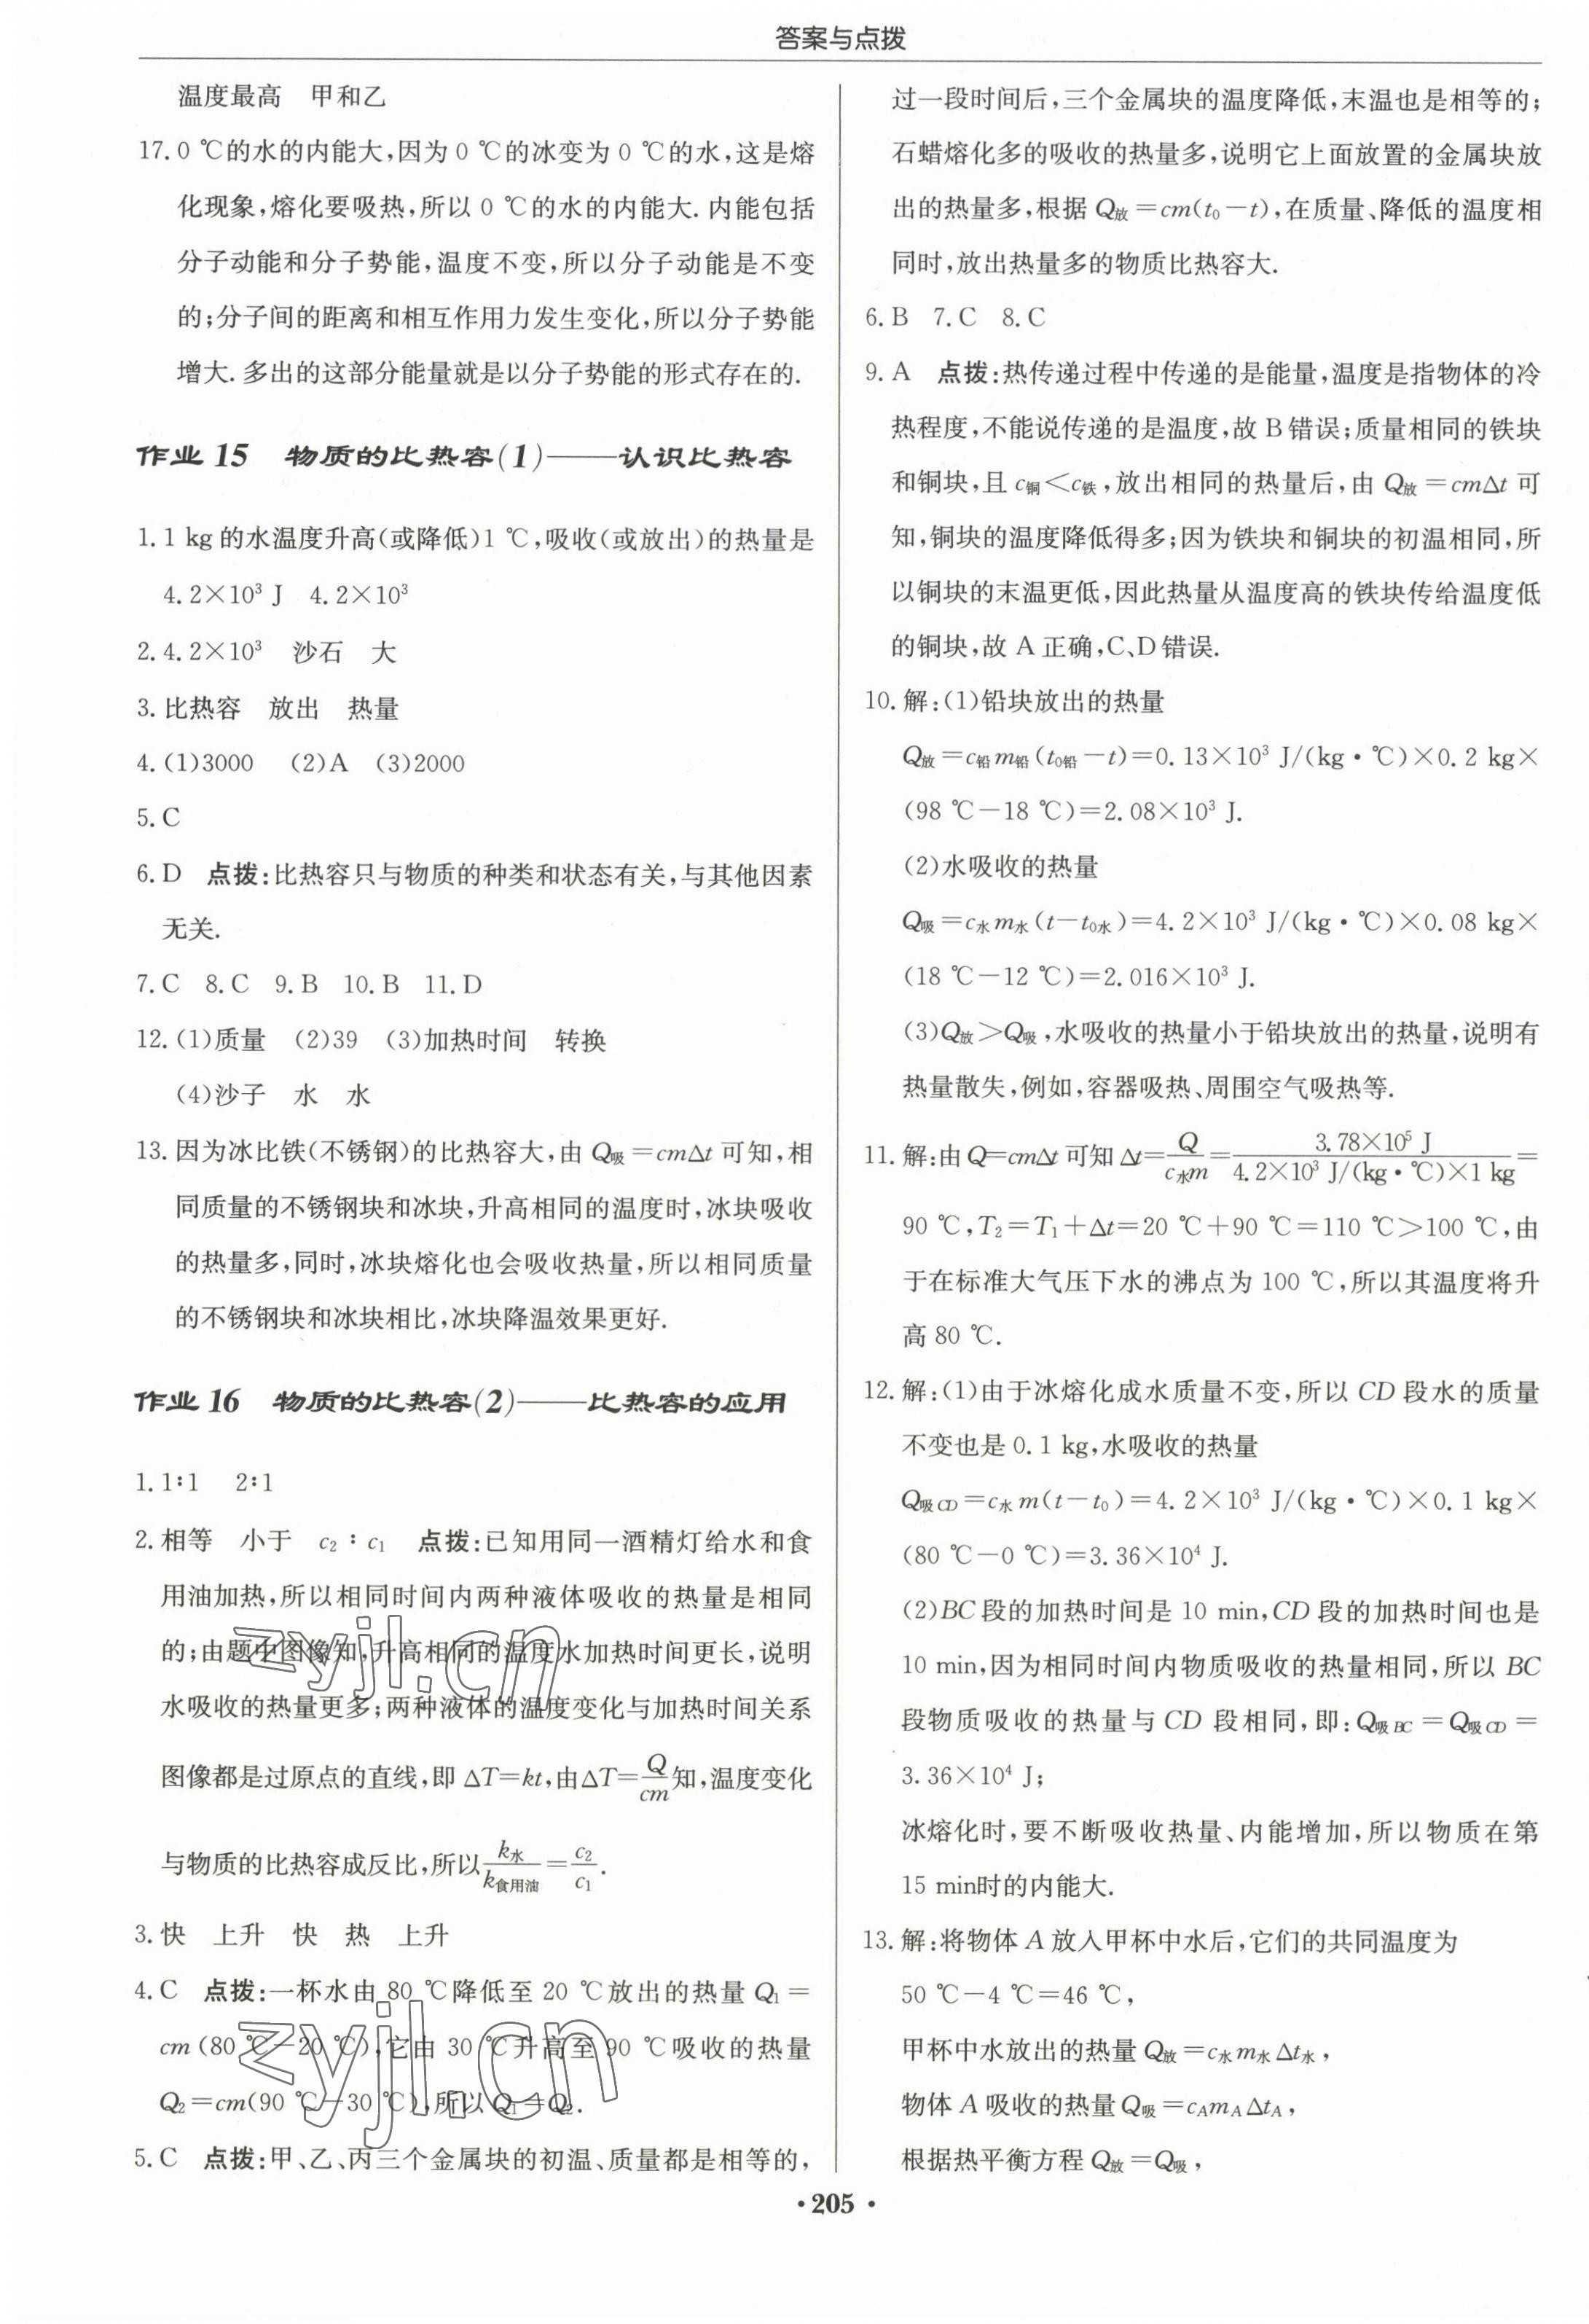 答案与点拨
温度最高　甲和乙
17. 0 ℃的水的内能大,因为0 ℃的冰变为0 ℃的水,这是熔
化现象,熔化要吸热,所以0 ℃的水的内能大. 内能包括
分子动能和分子势能,温度不变,所以分子动能是不变
的;分子间的距离和相互作用力发生变化,所以分子势能
增大. 多出的这部分能量就是以分子势能的形式存在的.
作业 15　物质的比热容(1)——认识比热容
1. 1 kg 的水温度升高(或降低)1 ℃,吸收(或放出)的热量是
4.2×10³ J　4.2×10³
2. 4.2×10³　沙石　大
3. 比热容　放出　热量
4. (1)3000　(2)A　(3)2000
5. C
6. D　点拨:比热容只与物质的种类和状态有关,与其他因素
无关.
7. C　8. C　9. B　10. B　11. D
12. (1)质量　(2)39　(3)加热时间　转换
(4)沙子　水　水
13. 因为冰比铁(不锈钢)的比热容大,由 Q吸=cmΔt 可知,相
同质量的不锈钢块和冰块,升高相同的温度时,冰块吸收
的热量多,同时,冰块熔化也会吸收热量,所以相同质量
的不锈钢块和冰块相比,冰块降温效果更好.
作业 16　物质的比热容(2)——比热容的应用
1. 1∶1　2∶1
2. 相等　小于　c₂∶c₁　点拨:已知用同一酒精灯给水和食
用油加热,所以相同时间内两种液体吸收的热量是相同
的;由题中图像知,升高相同的温度水加热时间更长,说明
水吸收的热量更多;两种液体的温度变化与加热时间关系
图像都是过原点的直线,即 ΔT=kt,由ΔT=Q/cm知,温度变化
与物质的比热容成反比,所以k水/k食用油=c₂/c₁.
3. 快　上升　快　热　上升
4. C　点拨:一杯水由 80 ℃降低至 20 ℃放出的热量 Q₁=
cm(80 ℃-20 ℃),它由 30 ℃升高至 90 ℃吸收的热量
Q₂=cm(90 ℃-30 ℃),所以 Q₁=Q₂.
5. C　点拨:甲、乙、丙三个金属块的初温、质量都是相等的,
过一段时间后,三个金属块的温度降低,末温也是相等的;
石蜡熔化多的吸收的热量多,说明它上面放置的金属块放
出的热量多,根据 Q放=cm(t₀-t),在质量、降低的温度相
同时,放出热量多的物质比热容大.
6. B　7. C　8. C
9. A　点拨:热传递过程中传递的是能量,温度是指物体的冷
热程度,不能说传递的是温度,故 B 错误;质量相同的铁块
和铜块,且 c铜<c铁,放出相同的热量后,由 Q放=cmΔt 可
知,铜块的温度降低得多;因为铁块和铜块的初温相同,所
以铜块的末温更低,因此热量从温度高的铁块传给温度低
的铜块,故 A 正确,C、D 错误.
10. 解:(1)铅块放出的热量
Q放=c铅m铅(t₀铅-t)=0.13×10³ J/(kg·℃)×0.2 kg×
(98 ℃-18 ℃)=2.08×10³ J.
(2)水吸收的热量
Q吸=c水m水(t-t₀水)=4.2×10³ J/(kg·℃)×0.08 kg×
(18 ℃-12 ℃)=2.016×10³ J.
(3)Q放>Q吸,水吸收的热量小于铅块放出的热量,说明有
热量散失,例如,容器吸热、周围空气吸热等.
11. 解:由 Q=cmΔt 可知 Δt=Q/c水m=3.78×10⁵ J/4.2×10³ J/(kg·℃)×1 kg=
90 ℃,T₂=T₁+Δt=20 ℃+90 ℃=110 ℃>100 ℃,由
于在标准大气压下水的沸点为 100 ℃,所以其温度将升
高 80 ℃.
12. 解:(1)由于冰熔化成水质量不变,所以 CD 段水的质量
不变也是 0.1 kg,水吸收的热量
Q吸CD=c水m(t-t₀)=4.2×10³ J/(kg·℃)×0.1 kg×
(80 ℃-0 ℃)=3.36×10⁴ J.
(2)BC 段的加热时间是 10 min,CD 段的加热时间也是
10 min,因为相同时间内物质吸收的热量相同,所以 BC
段物质吸收的热量与 CD 段相同,即:Q吸BC=Q吸CD=
3.36×10⁴ J;
冰熔化时,要不断吸收热量、内能增加,所以物质在第
15 min时的内能大.
13. 解:将物体 A 放入甲杯中水后,它们的共同温度为
50 ℃-4 ℃=46 ℃,
甲杯中水放出的热量 Q放=c水m水Δt水,
物体 A 吸收的热量 Q吸=cAmAΔtA,
根据热平衡方程 Q放=Q吸,
zyjl.cn
zyjl.cn
· 205 ·